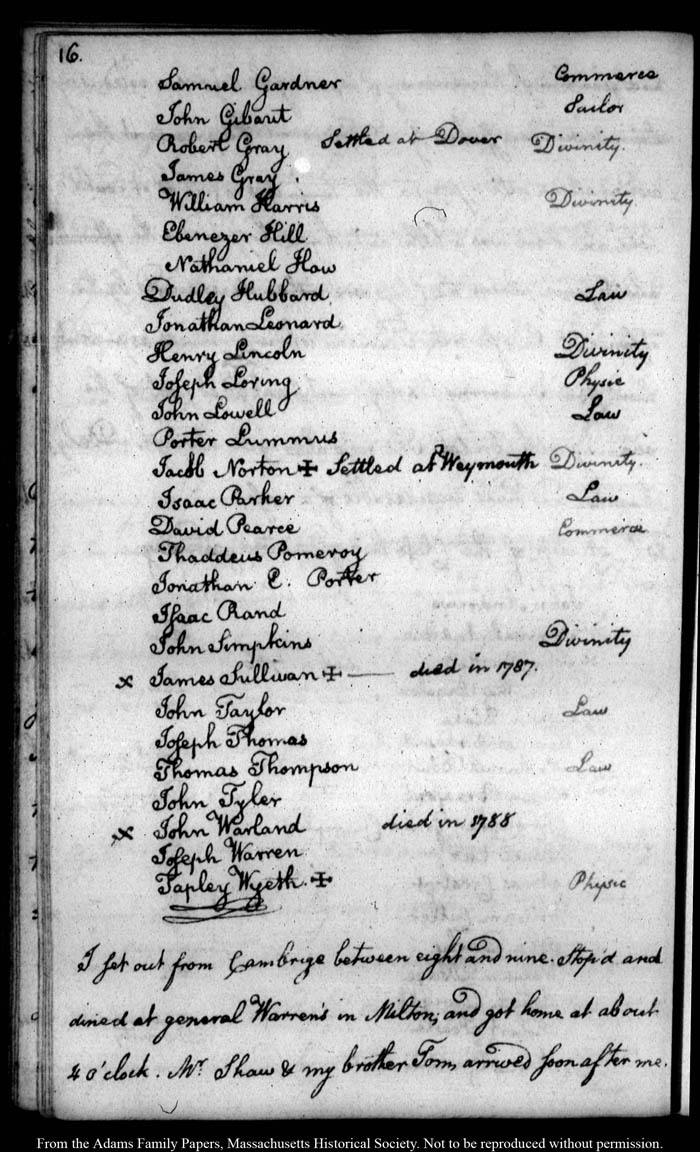 16.
Samuel Gardner Commerce
John Gibaut Sailor
Robert Gray Settled at Dover Divinity.
James Gray.
William Harris Divinity
Ebenezer Hill
Nathaniel Haw
Dudley Hubbard. Law
Jonathan Leonard.
Henry Lincoln Divinity
Joseph Loring Physic
John Lowell Law
Porter Lummus
Jacob Norton ✠ Settled at Weymouth Divinity.
Isaac Parker Law
David Pearce Commerce
Thaddeus Pomeroy
Jonathan E. Porter
Isaac Rand
John Simpkins Divinity
x James Sullivan ✠ — died in 1787.
John Taylor Law
Joseph Thomas
Thomas Thompson Law
John Tyler
x John Warland died in 1788
Joseph Warren
Tapley Wyeth. ✠ Physic
I set out from Cambrige between eight and nine. Stop'd and
dined at general Warren's in Milton, and got home at about
4 o'clock. Mr. Shaw & my brother Tom, arrived soon after me.
From the Adams Family Papers, Massachusetts Historical Society. Not to be reproduced without permission.